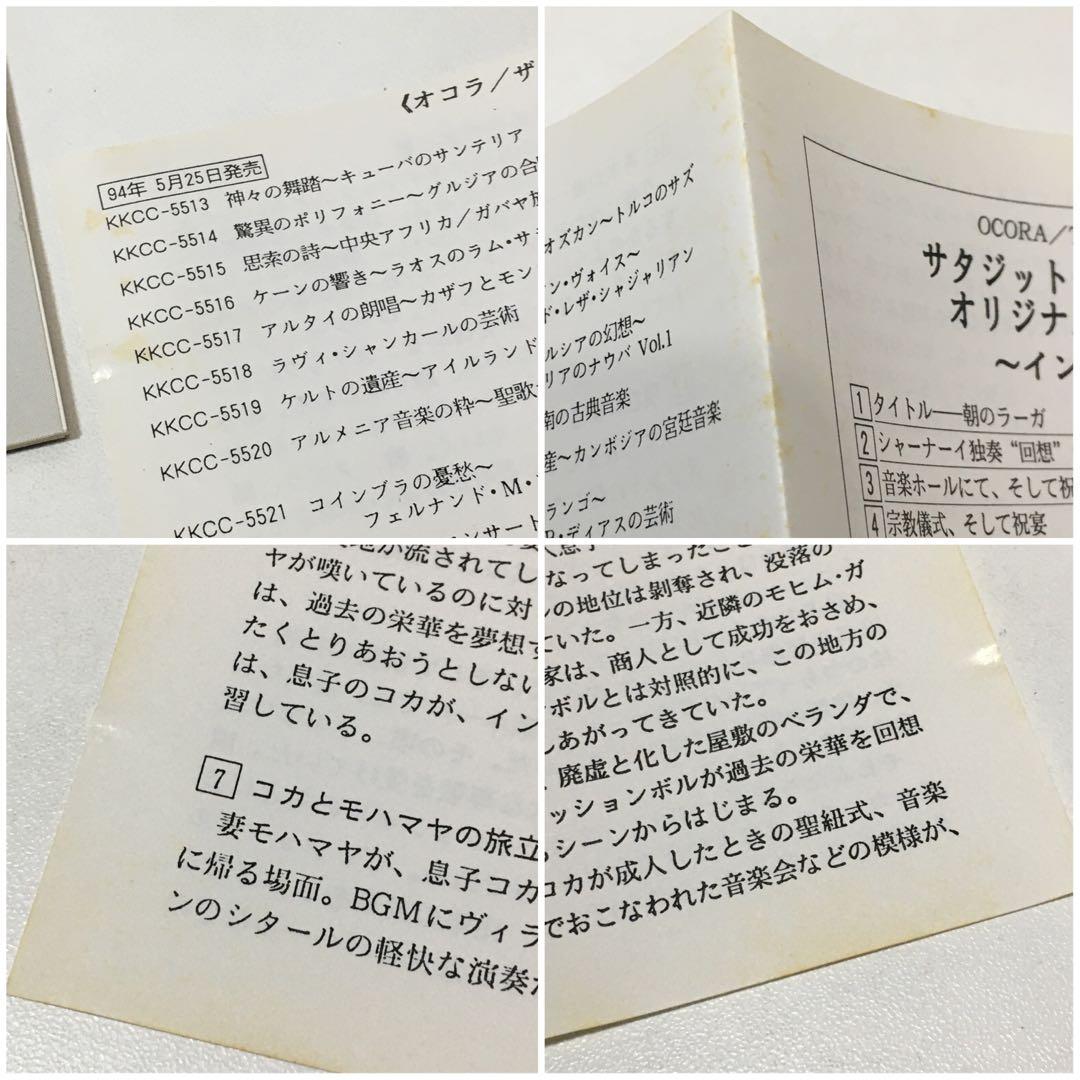 《オコラ／ザ
94年 5月25日発売
KKCC-5513 神々の舞踏～キューバのサンテリア
KKCC-5514 驚異のポリフォニー～グルジアの合
KKCC-5515 思索の詩～中央アフリカ／ガバヤ族
KKCC-5516 ケーンの響き～ラオスのラム・サ
KKCC-5517 アルタイの朗唱～カザフとモン
KKCC-5518 ラヴィ・シャンカールの芸術
KKCC-5519 ケルトの遺産～アイルランド
KKCC-5520 アルメニア音楽の粋～聖歌
KKCC-5521 コインブラの憂愁～
フェルナンド・M・
ンサート
オズカン～トルコのサズ
ン・ヴォイス～
ド・レザ・シャジャリアン
ルシアの幻想～
リアのナウバ Vol.1
南の古典音楽
産～カンボジアの宮廷音楽
ランゴ～
P・ディアスの芸術
OCORA/
サタジット
オリジナ
～イン
1 タイトル──朝のラーガ
2 シャーナーイ独奏“回想”
3 音楽ホールにて、そして祝
4 宗教儀式、そして祝宴
が流されてし
ヤが嘆いているのに対
は、過去の栄華を夢想す
たくとりあおうとしない
は、息子のコカが、イン
習している。
7 コカとモハマヤの旅立
妻モハマヤが、息子コカ
に帰る場面。BGMにヴィラ
ンのシタールの軽快な演奏が
なってしまったこと
の地位は剝奪され、没落の
ていた。一方、近隣のモヒム・ガ
家は、商人として成功をおさめ、
ボルとは対照的に、この地方の
しあがってきていた。
廃虚と化した屋敷のベランダで、
ッションボルが過去の栄華を回想
シーンからはじまる。
コカが成人したときの聖紐式、音楽
でおこなわれた音楽会などの模様が、